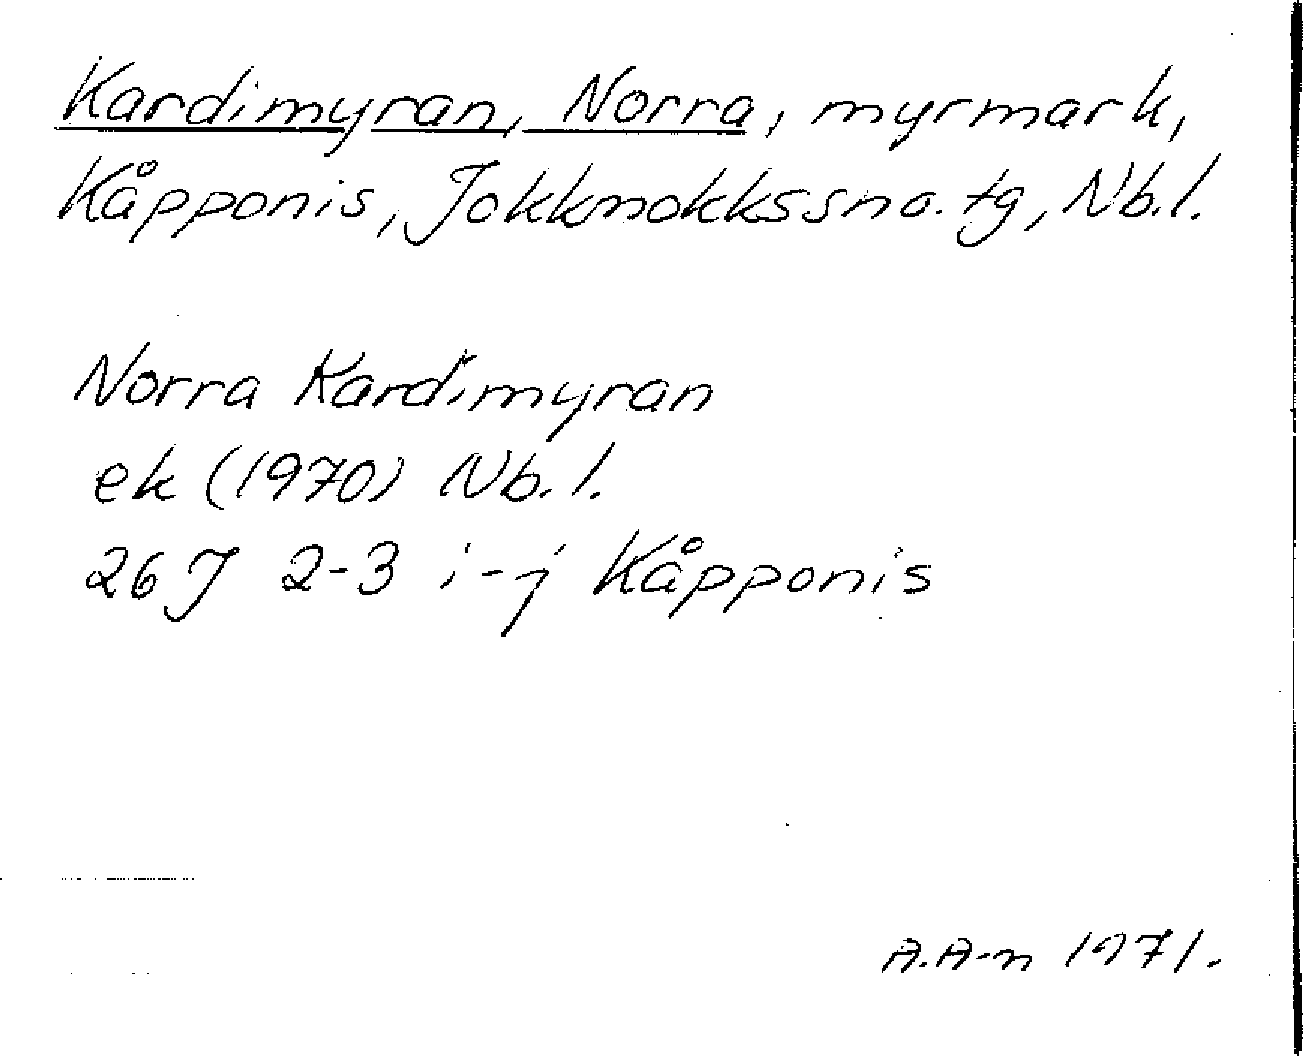 Kardimyran, Norra, myrmark,
Kåpponis, Jokkmokkssna.tg, Nb.l.
Norra Kardimyran
ek (1970) Nb.l.
26 J 2-3 i-j Kåpponis
A.A-n 1971.